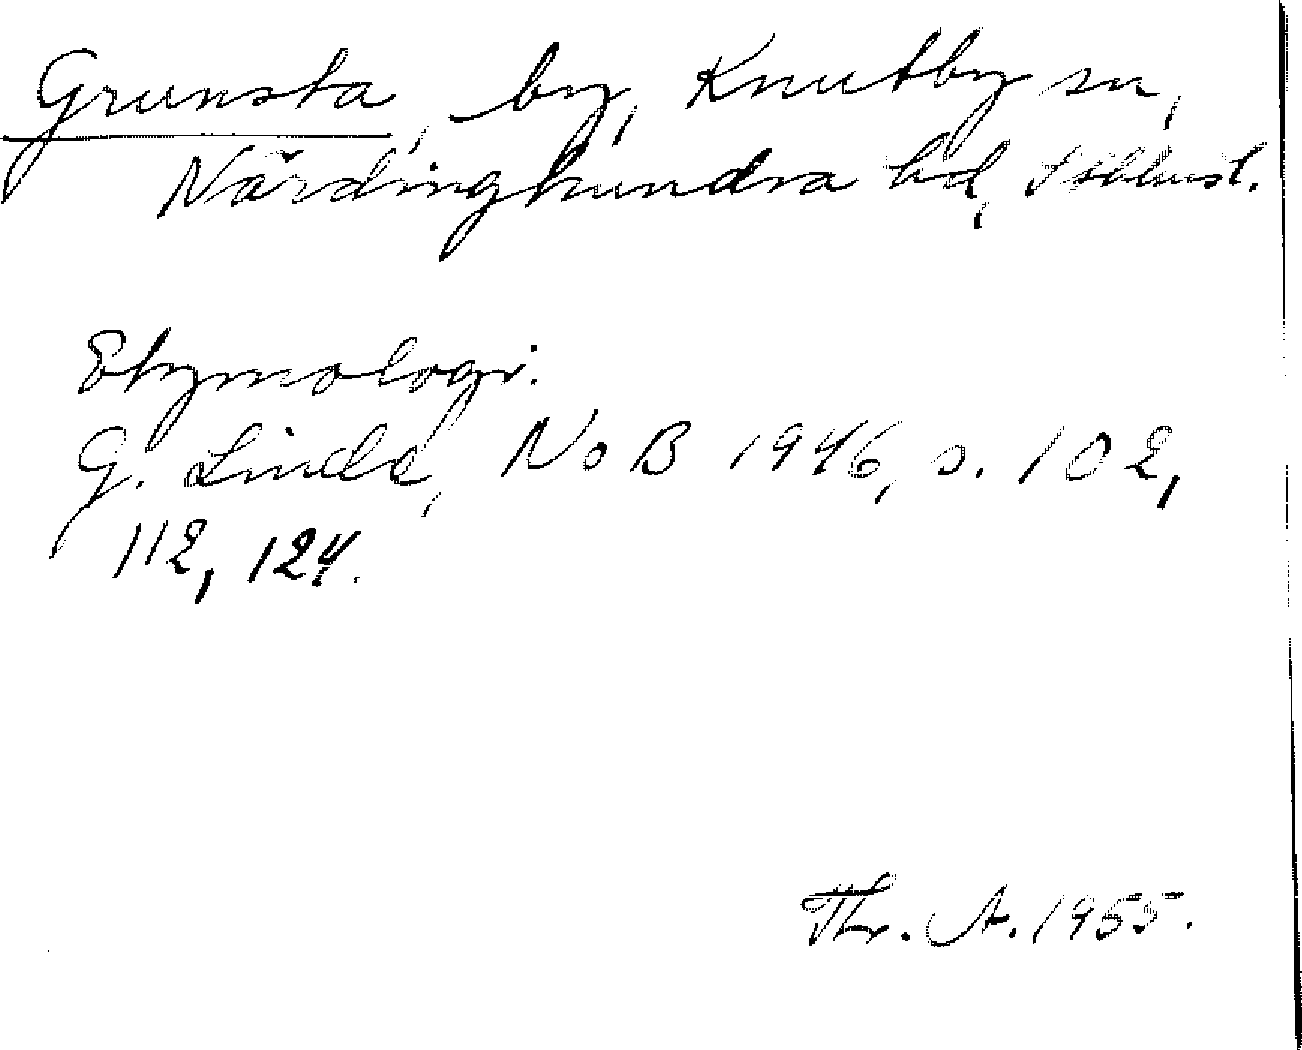 Grunsta, by, Knutby sn,
Närdinghundra hd, Sthlmsl.
Etymologi.
G. Linde, NoB 1946, s. 102,
112, 124.
Thr. A. 1955.